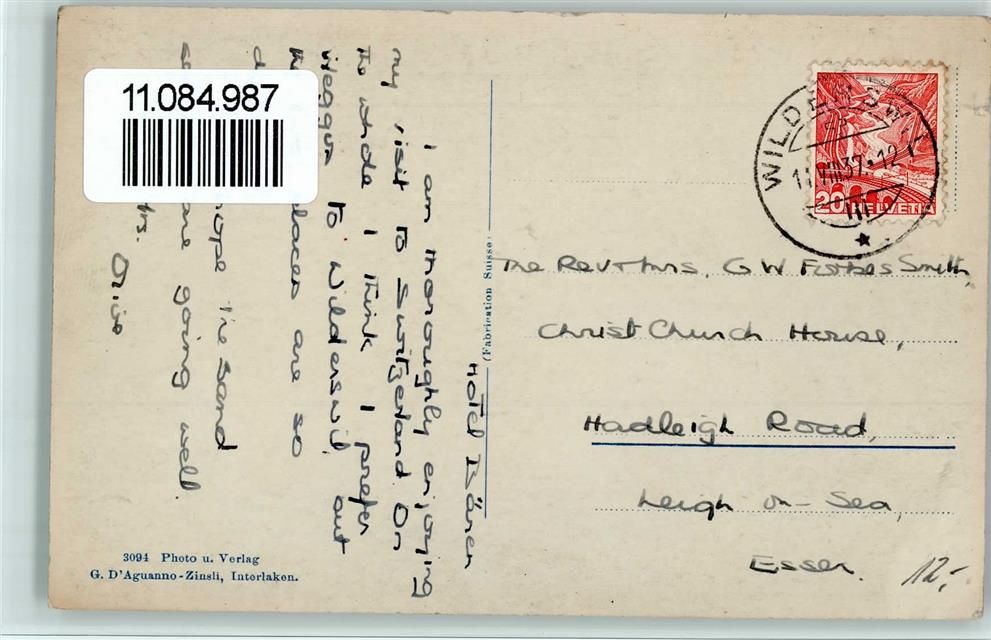 11.084.987
Hotel Bären
I am thoroughly enjoying
my visit to Switzerland. On
the whole I think I prefer
Weggis to Wilderswil, but
places are so
hope the Sand
are going well.
Olive
(Fabrication Suisse)
WILDERSWIL
VIII 37-12
III
20 HELVETIA
The Rev & Mrs. G W Forbes Smith,
Christ Church House,
Hadleigh Road,
Leigh on-Sea,
Essex.
12,-
3094 Photo u. Verlag
G. D'Aguanno-Zinsli, Interlaken.